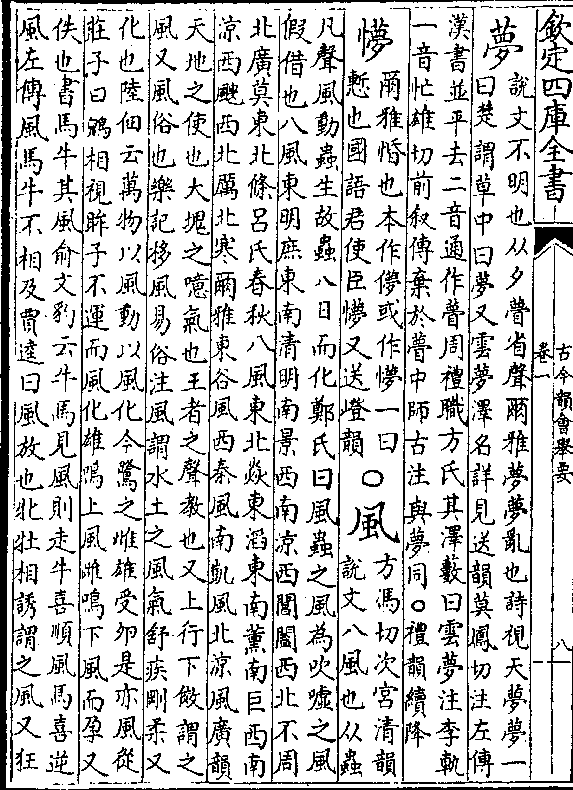 欽定四庫全書
古今韻會舉要
卷一
八
夢
說文不明也从夕瞢省聲爾雅夢夢亂也詩視天夢夢一
曰楚謂草中曰夢又雲夢澤名詳見送韻莫鳳切注左傳
漢書並平去二音通作瞢周禮職方氏其澤藪曰雲夢注李軌
一音忙雄切前叙傳棄於瞢中師古注與夢同○禮韻續降
懜
爾雅惛也本作儚或作懜一曰
慙也國語君使臣懜又送嶝韻
○風
方馮切次宮清韻
說文八風也从蟲
凡聲風動蟲生故蟲八日而化鄭氏曰風蟲之風為吹噓之風
假借也八風東明庶東南清明南景西南涼西閶闔西北不周
北廣莫東北條呂氏春秋八風東北焱東滔東南薰南巨西南
凉西飂西北厲北寒爾雅東谷風西泰風南凱風北涼風廣韻
天地之使也大塊之噫氣也王者之聲教也又上行下傚謂之
風又風俗也樂記移風易俗注風謂水土之風氣舒疾剛柔又
化也陸佃云萬物以風動以風化今鷺之雌雄受卵是亦風從
莊子曰鶂相視眸子不運而風化雄鳴上風雌鳴下風而孕又
佚也書馬牛其風俞文豹云牛馬見風則走牛喜順風馬喜逆
風左傳風馬牛不相及賈逵曰風放也牝牡相誘謂之風又狂